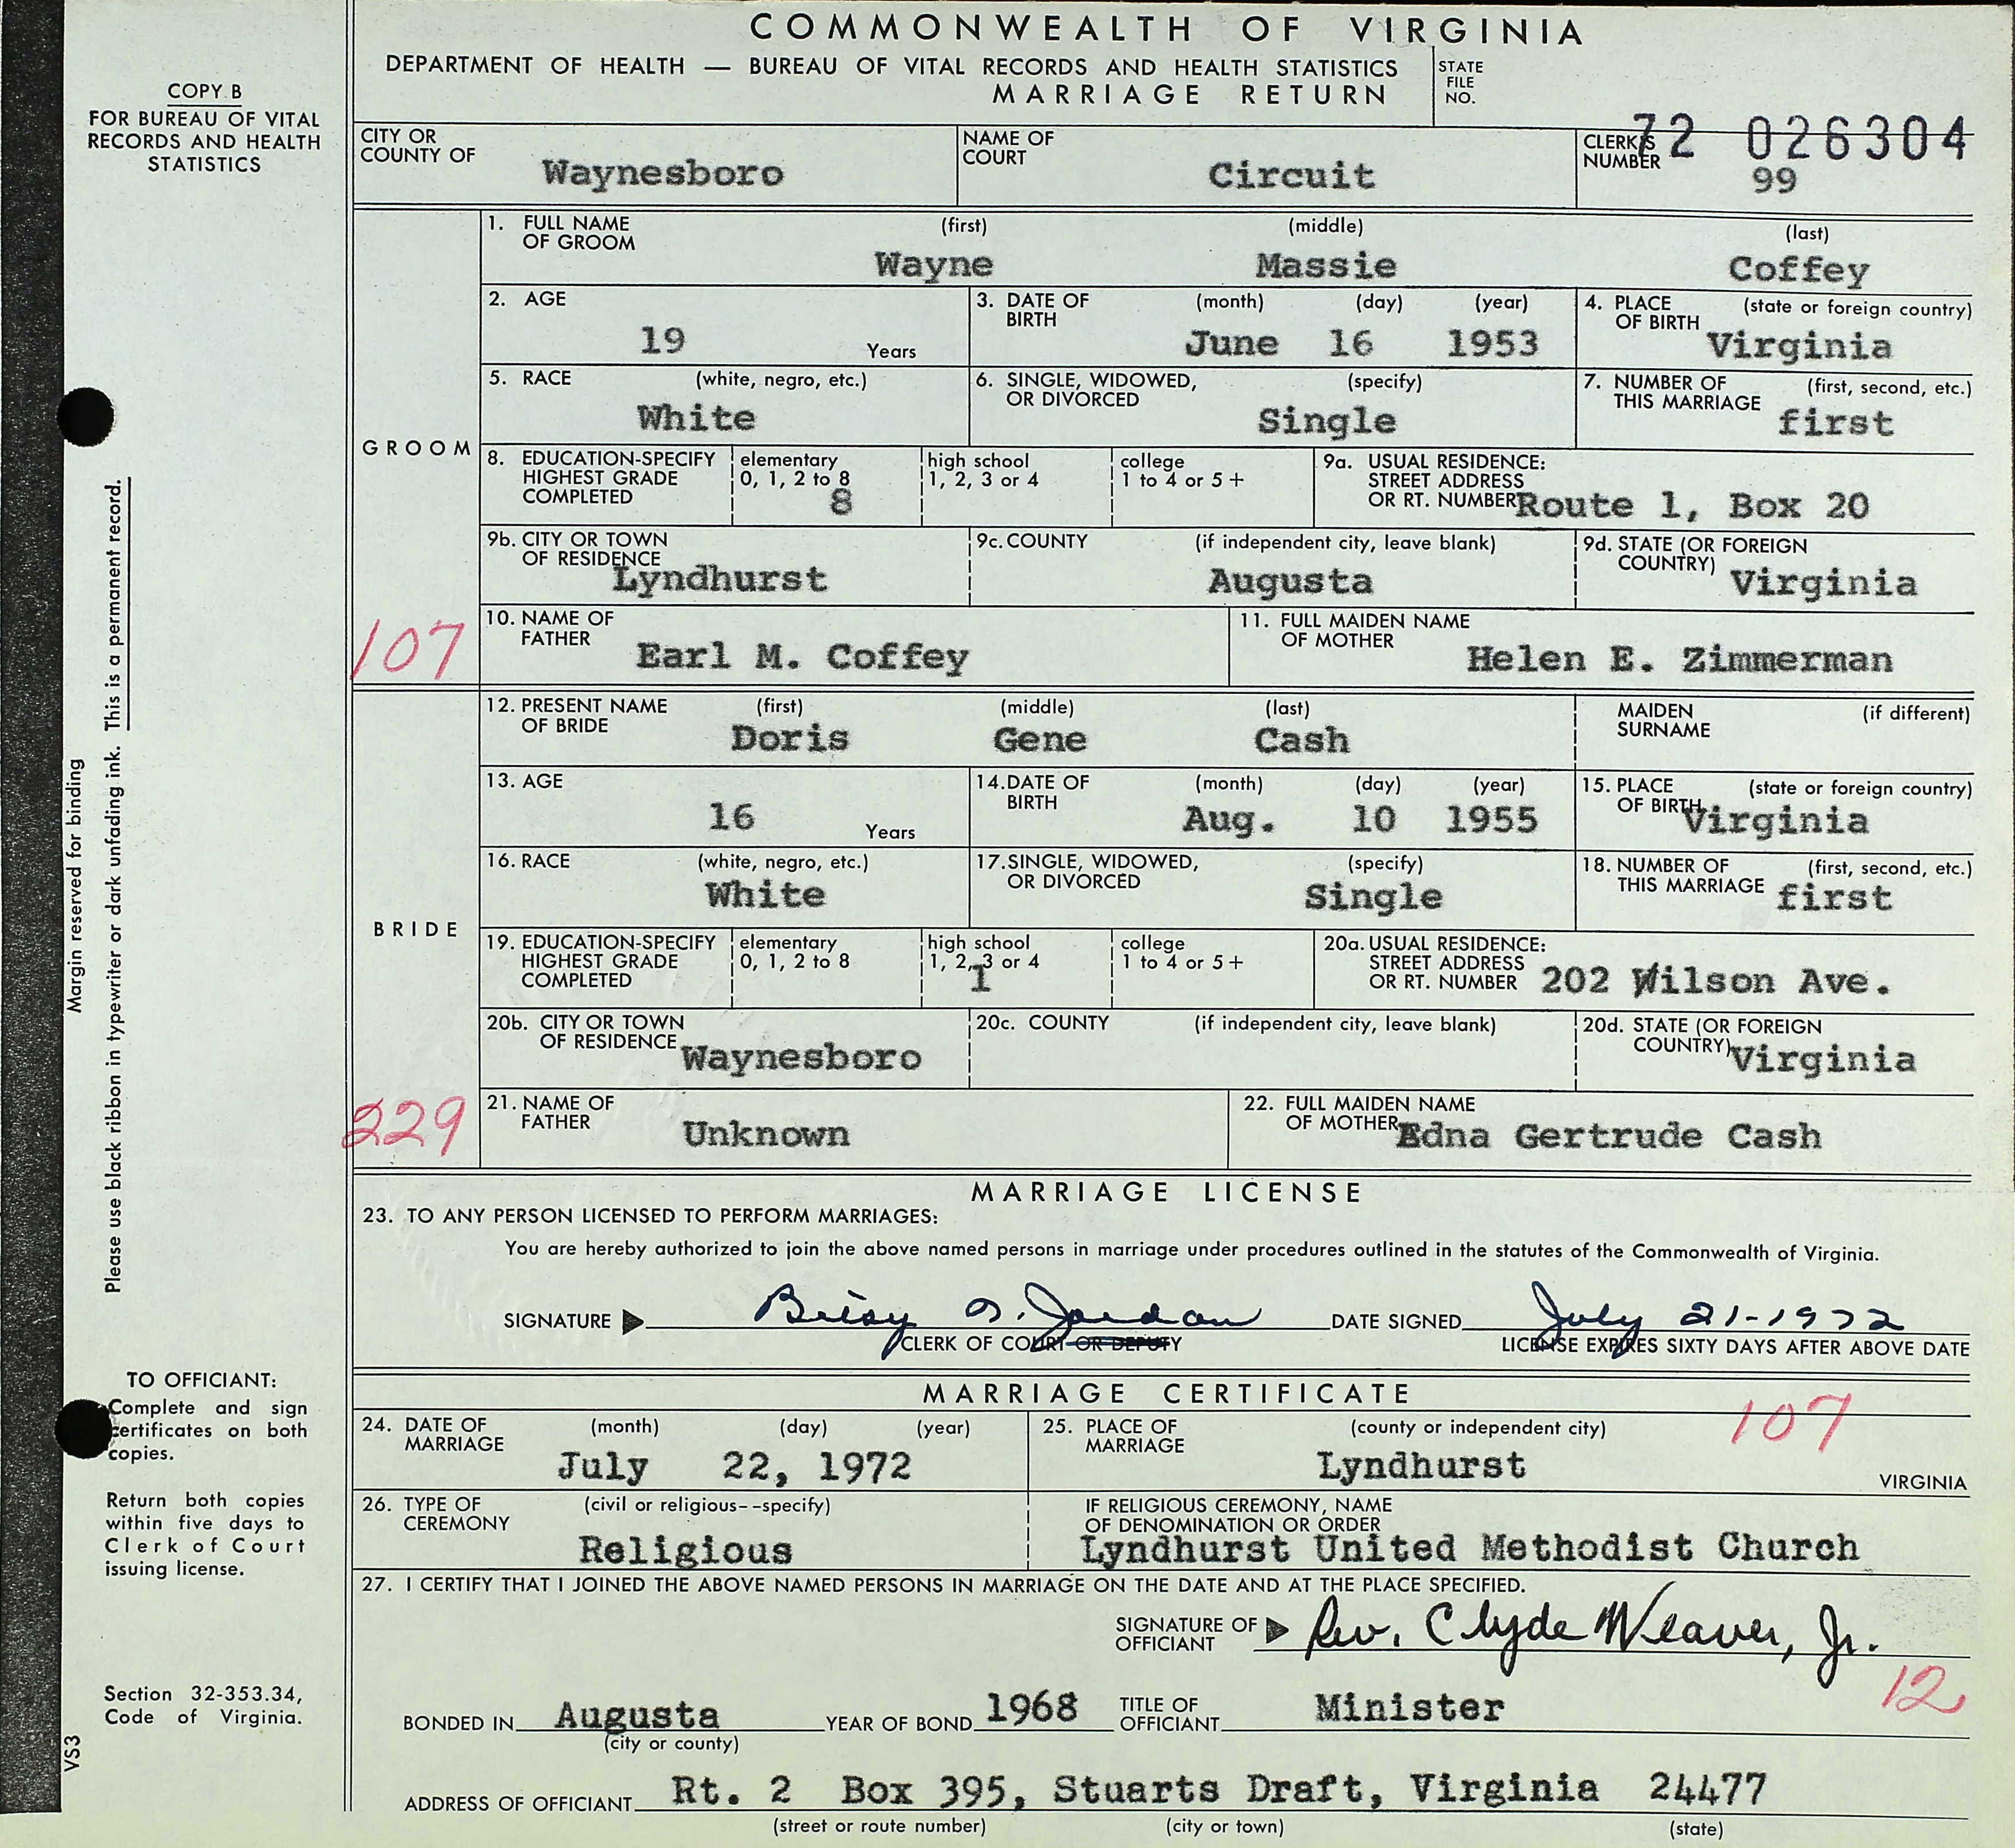 COMMONWEALTH OF VIRGINIA
DEPARTMENT OF HEALTH — BUREAU OF VITAL RECORDS AND HEALTH STATISTICS
MARRIAGE RETURN
STATE FILE NO.
72 026304
COPY B
FOR BUREAU OF VITAL
RECORDS AND HEALTH
STATISTICS
CITY OR COUNTY OF Waynesboro
NAME OF COURT Circuit
CLERK'S NUMBER 99
GROOM
107
1. FULL NAME OF GROOM (first) Wayne (middle) Massie (last) Coffey
2. AGE 19 Years
3. DATE OF BIRTH (month) (day) (year) June 16 1953
4. PLACE OF BIRTH (state or foreign country) Virginia
5. RACE (white, negro, etc.) White
6. SINGLE, WIDOWED, OR DIVORCED (specify) Single
7. NUMBER OF THIS MARRIAGE (first, second, etc.) first
8. EDUCATION-SPECIFY HIGHEST GRADE COMPLETED
elementary 0, 1, 2 to 8 8
high school 1, 2, 3 or 4
college 1 to 4 or 5+
9a. USUAL RESIDENCE: STREET ADDRESS OR RT. NUMBER Route 1, Box 20
9b. CITY OR TOWN OF RESIDENCE Lyndhurst
9c. COUNTY (if independent city, leave blank) Augusta
9d. STATE (OR FOREIGN COUNTRY) Virginia
10. NAME OF FATHER Earl M. Coffey
11. FULL MAIDEN NAME OF MOTHER Helen E. Zimmerman
BRIDE
229
12. PRESENT NAME OF BRIDE (first) Doris (middle) Gene (last) Cash
MAIDEN SURNAME (if different)
13. AGE 16 Years
14. DATE OF BIRTH (month) (day) (year) Aug. 10 1955
15. PLACE OF BIRTH (state or foreign country) Virginia
16. RACE (white, negro, etc.) White
17. SINGLE, WIDOWED, OR DIVORCED (specify) Single
18. NUMBER OF THIS MARRIAGE (first, second, etc.) first
19. EDUCATION-SPECIFY HIGHEST GRADE COMPLETED
elementary 0, 1, 2 to 8
high school 1, 2, 3 or 4 1
college 1 to 4 or 5+
20a. USUAL RESIDENCE: STREET ADDRESS OR RT. NUMBER 202 Wilson Ave.
20b. CITY OR TOWN OF RESIDENCE Waynesboro
20c. COUNTY (if independent city, leave blank)
20d. STATE (OR FOREIGN COUNTRY) Virginia
21. NAME OF FATHER Unknown
22. FULL MAIDEN NAME OF MOTHER Edna Gertrude Cash
MARRIAGE LICENSE
23. TO ANY PERSON LICENSED TO PERFORM MARRIAGES:
You are hereby authorized to join the above named persons in marriage under procedures outlined in the statutes of the Commonwealth of Virginia.
SIGNATURE Jordan DATE SIGNED July 21-1972
CLERK OF COURT OR DEPUTY LICENSE EXPIRES SIXTY DAYS AFTER ABOVE DATE
MARRIAGE CERTIFICATE
107
24. DATE OF MARRIAGE (month) (day) (year) July 22, 1972
25. PLACE OF MARRIAGE (county or independent city) Lyndhurst VIRGINIA
26. TYPE OF CEREMONY (civil or religious--specify) Religious
IF RELIGIOUS CEREMONY, NAME OF DENOMINATION OR ORDER Lyndhurst United Methodist Church
27. I CERTIFY THAT I JOINED THE ABOVE NAMED PERSONS IN MARRIAGE ON THE DATE AND AT THE PLACE SPECIFIED.
SIGNATURE OF OFFICIANT Rev. Clyde Weaver, Jr.
12
BONDED IN Augusta YEAR OF BOND 1968 TITLE OF OFFICIANT Minister
(city or county)
ADDRESS OF OFFICIANT Rt. 2 Box 395, Stuarts Draft, Virginia 24477
(street or route number) (city or town) (state)
Margin reserved for binding
Please use black ribbon in typewriter or dark unfading ink. This is a permanent record.
TO OFFICIANT:
Complete and sign
certificates on both
copies.
Return both copies
within five days to
Clerk of Court
issuing license.
Section 32-353.34,
Code of Virginia.
VS3